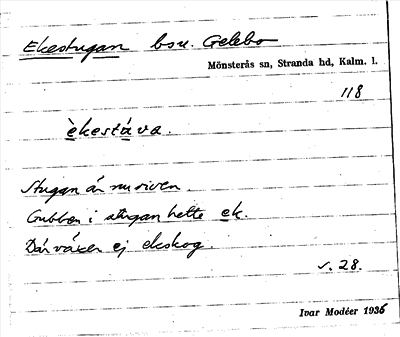 Ekestugan bsu. Gelebo
Mönsterås sn, Stranda hd, Kalm. l.
118
èkestáva.
Stugan är nu riven.
Gubben i stugan hette ek.
Där växer ej ekskog.
s. 28.
Ivar Modéer 1936